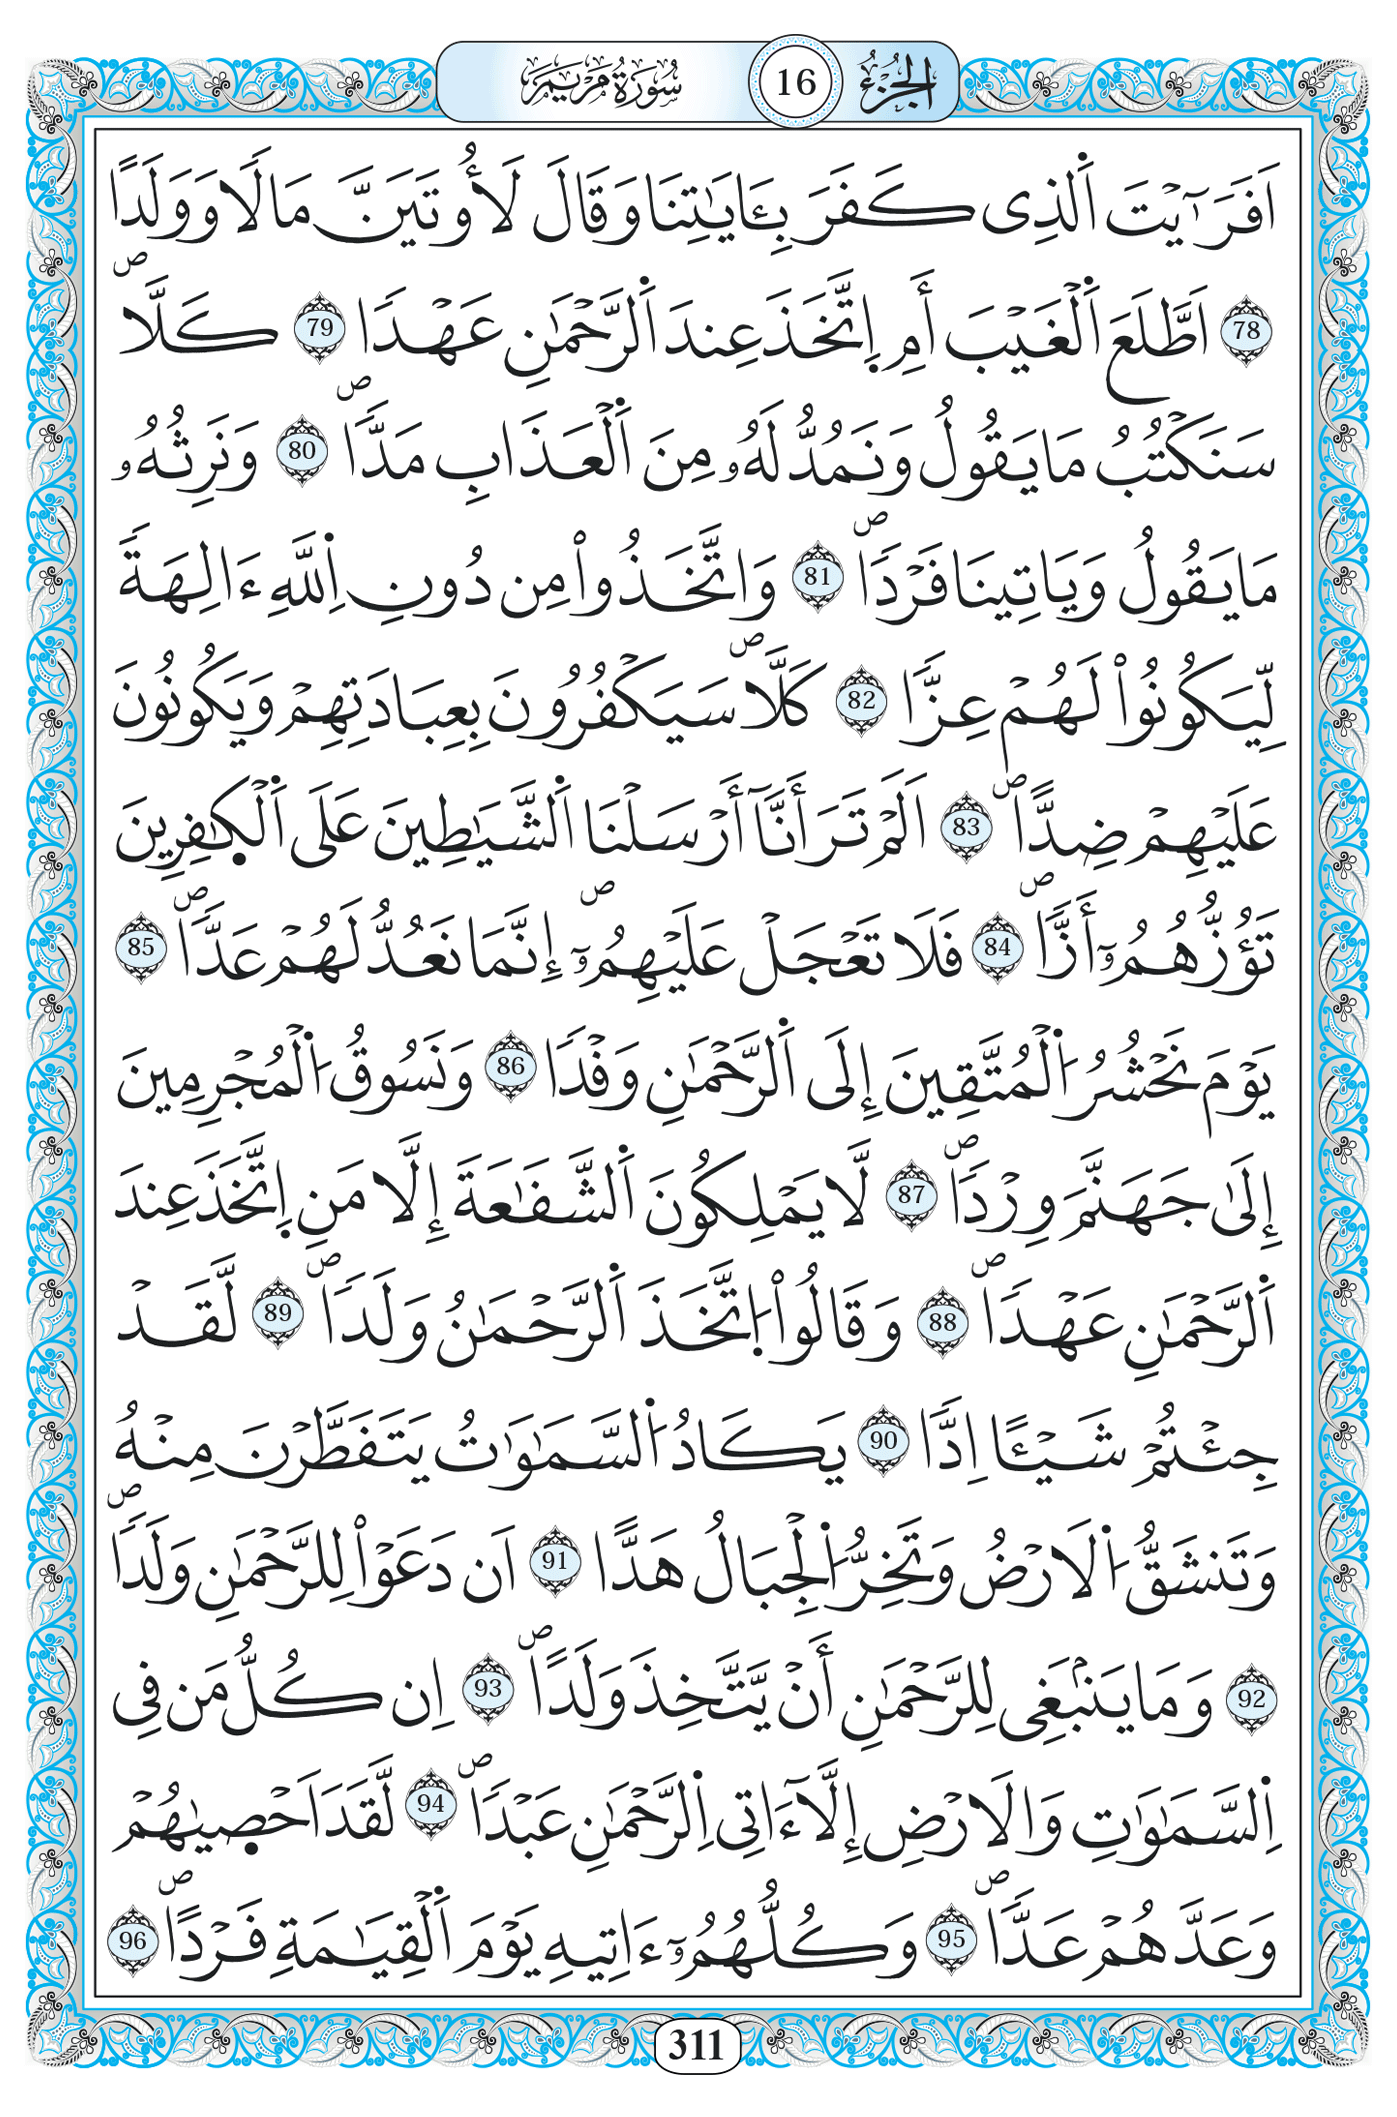 الجُزْءُ 16 سُورَةُ مَرْيَمَ
اَفَرَٰٓيْتَ اَ۬لذِے كَفَرَ بِـَٔايَٰتِنَا وَقَالَ لَأُوتَيَنَّ مَالٗا وَوَلَداًۖ
78 اَطَّلَعَ اَ۬لْغَيْبَ أَمِ اِ۪تَّخَذَ عِندَ اَ۬لرَّحْمَٰنِ عَهْداٗ 79 كَلَّاۖ
سَنَكْتُبُ مَا يَقُولُ وَنَمُدُّ لَهُۥ مِنَ اَ۬لْعَذَابِ مَدّاٗۖ 80 وَنَرِثُهُۥ
مَا يَقُولُ وَيَاتِينَا فَرْداٗۖ 81 وَاتَّخَذُواْ مِن دُونِ اِ۬للَّهِ ءَالِهَةٗ
لِّيَكُونُواْ لَهُمْ عِزّاٗ 82 كَلَّاۖ سَيَكْفُرُونَ بِعِبَادَتِهِمْ وَيَكُونُونَ
عَلَيْهِمْ ضِدّاًۖ 83 اَلَمْ تَرَ أَنَّآ أَرْسَلْنَا اَ۬لشَّيَٰطِينَ عَلَى اَ۬لْكٰ۪فِرِينَ
تَؤُزُّهُمُۥٓ أَزّاٗۖ 84 فَلَا تَعْجَلْ عَلَيْهِمُۥٓۖ إِنَّمَا نَعُدُّ لَهُمْ عَدّاٗۖ 85
يَوْمَ نَحْشُرُ اُ۬لْمُتَّقِينَ إِلَى اَ۬لرَّحْمَٰنِ وَفْداٗ 86 وَنَسُوقُ اُ۬لْمُجْرِمِينَ
إِلَىٰ جَهَنَّمَ وِرْداٗۖ 87 لَّا يَمْلِكُونَ اَ۬لشَّفَٰعَةَ إِلَّا مَنِ اِ۪تَّخَذَ عِندَ
اَ۬لرَّحْمَٰنِ عَهْداٗۖ 88 وَقَالُواْ اُ۪تَّخَذَ اَ۬لرَّحْمَٰنُ وَلَداٗۖ 89 لَّقَدْ
جِئْتُمْ شَيْـٔاً اِدّاٗ 90 يَكَادُ اُ۬لسَّمَٰوَٰتُ يَتَفَطَّرْنَ مِنْهُ
وَتَنشَقُّ اُ۬لَارْضُ وَتَخِرُّ اُ۬لْجِبَالُ هَدّاً 91 اَن دَعَوْاْ لِلرَّحْمَٰنِ وَلَداٗۖ
92 وَمَا يَنۢبَغِے لِلرَّحْمَٰنِ أَنْ يَّتَّخِذَ وَلَداًۖ 93 اِن كُلُّ مَن فِے
اِ۬لسَّمَٰوَٰتِ وَالَارْضِ إِلَّآ ءَاتِے اِ۬لرَّحْمَٰنِ عَبْداٗۖ 94 لَّقَدَ اَحْص۪يٰهُمْ
وَعَدَّهُمْ عَدّاٗۖ 95 وَكُلُّهُمُۥٓ ءَاتِيهِ يَوْمَ اَ۬لْقِيَٰمَةِ فَرْداًۖ 96
311